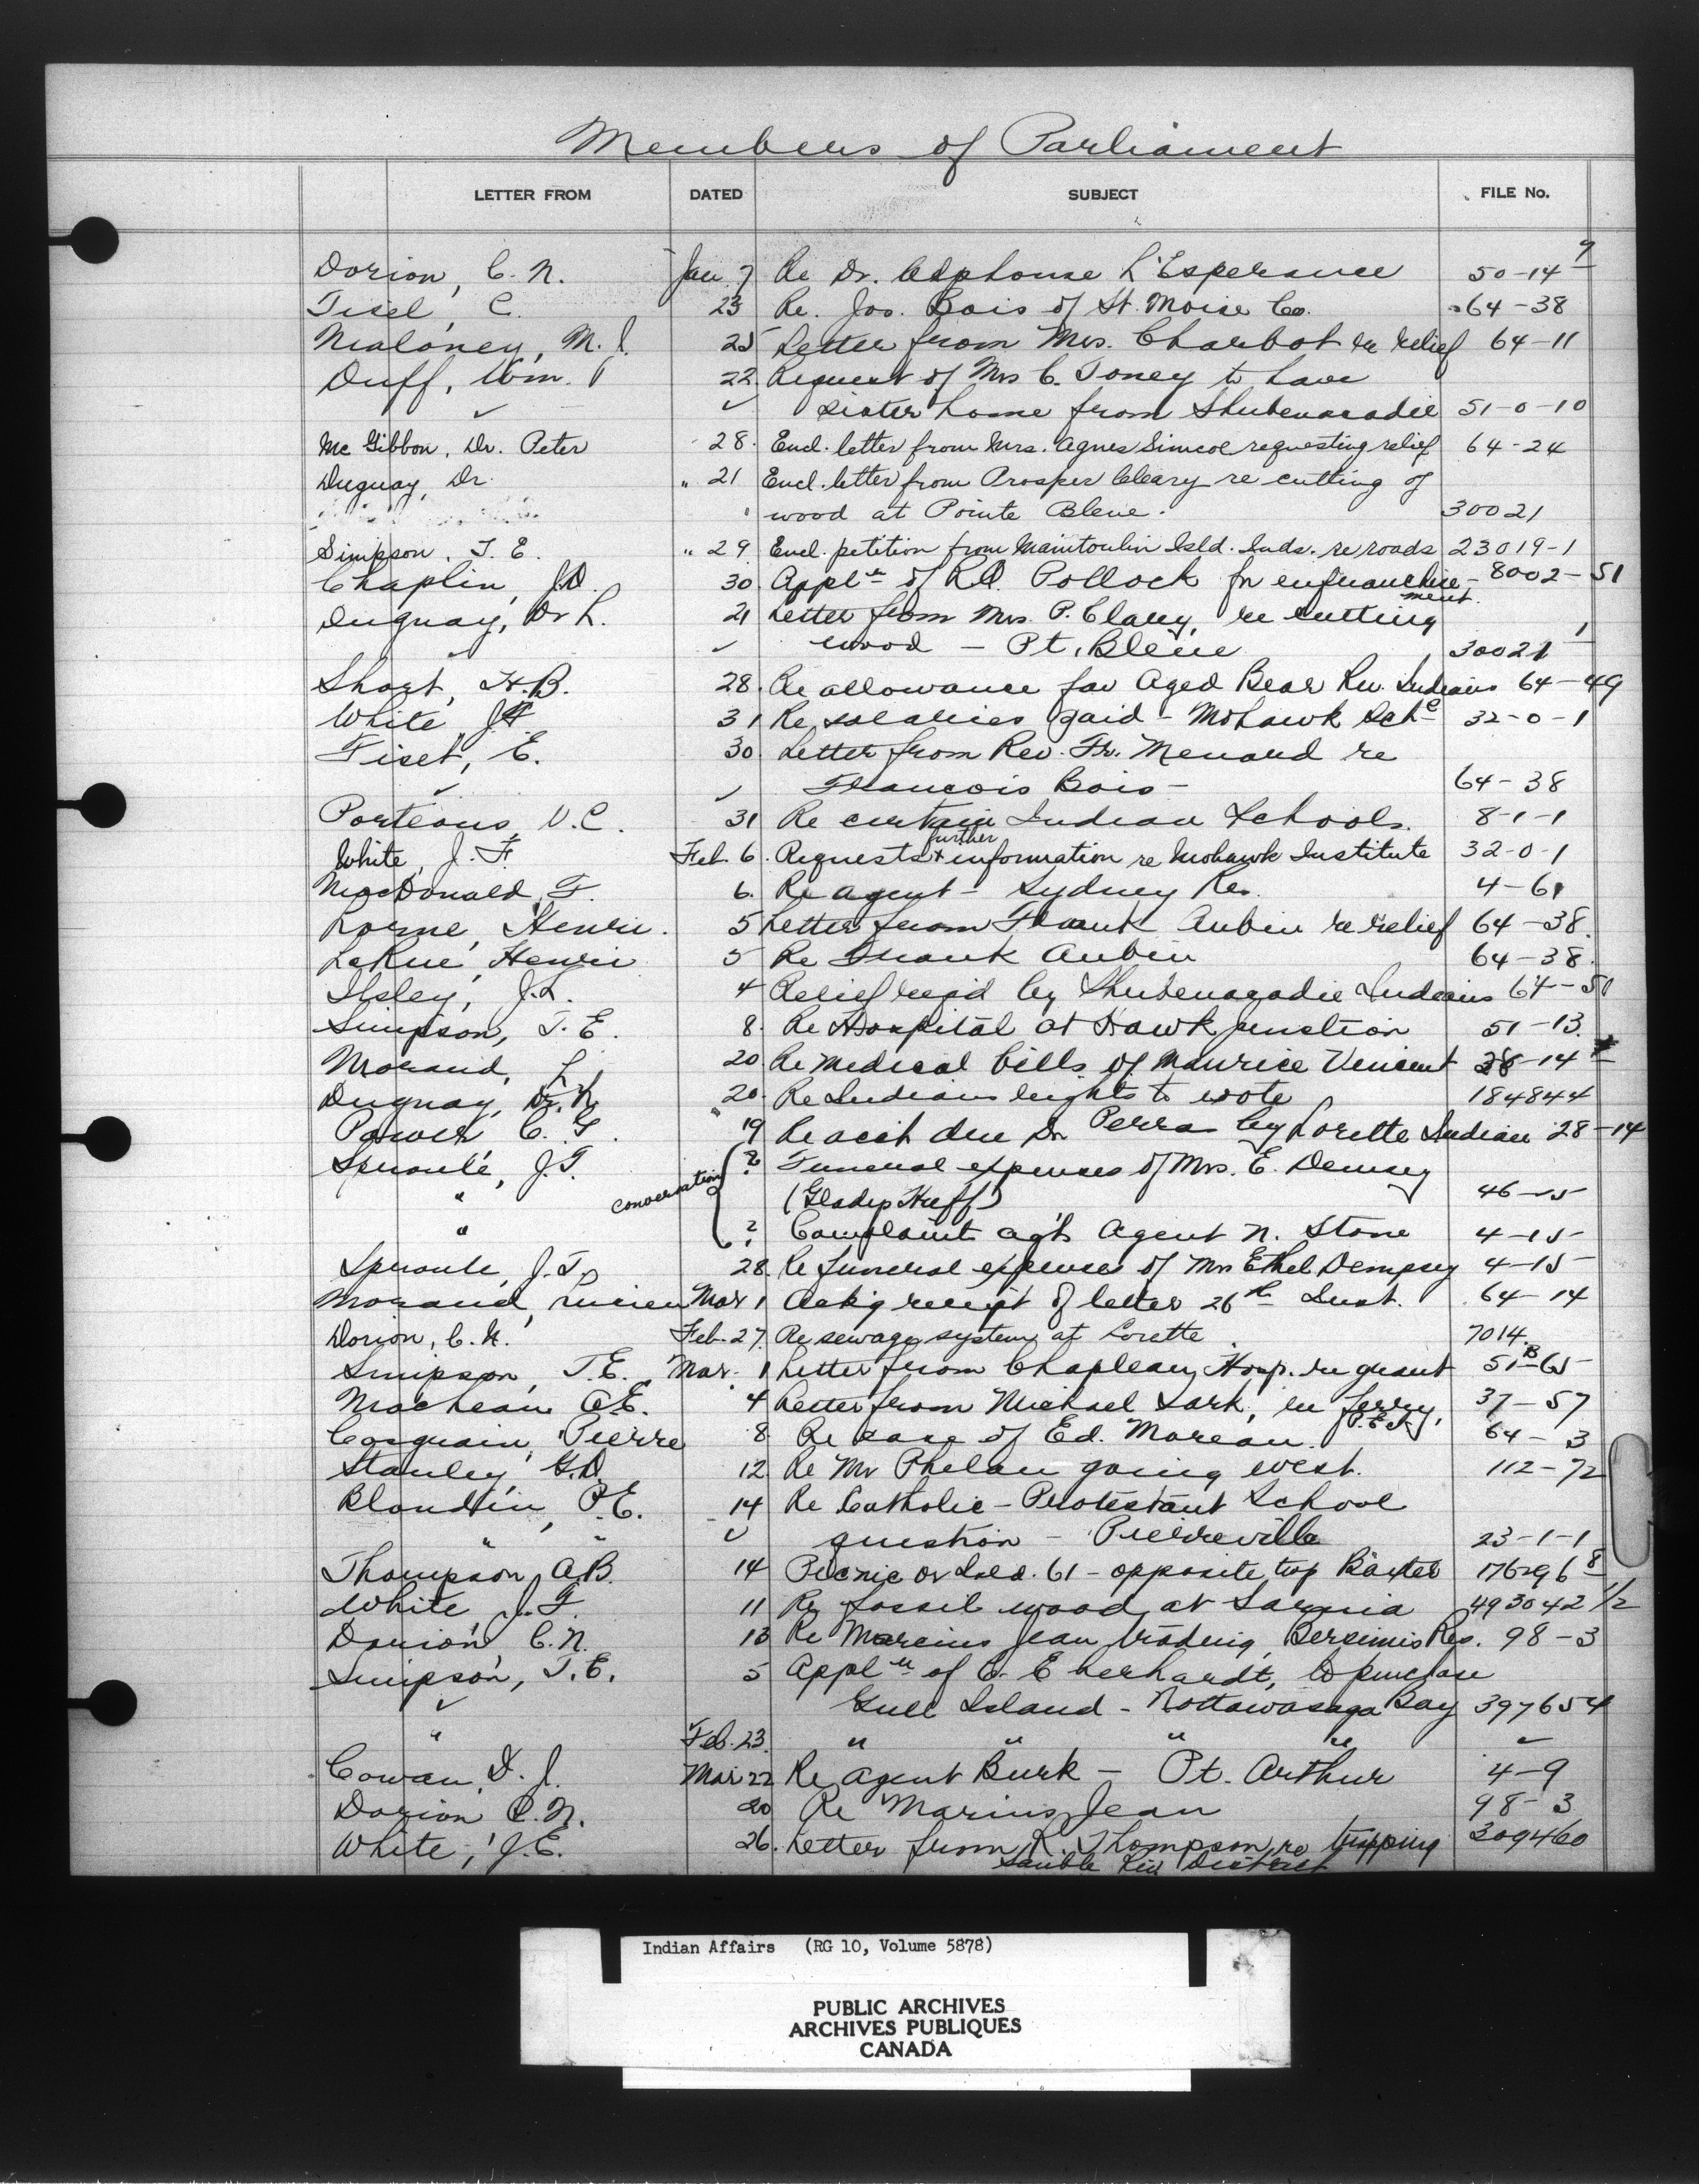 Members of Parliament
LETTER FROM DATED SUBJECT FILE No.
Dorion, C. N. Jan 7 Re Dr. Alphonse L'Esperance 50-14-7
Fisel, C. 23 Re. Jos. Bois of St. Moise Co. 64-38
Maloney, M. J. 25 Letter from Mrs. Charbot re relief 64-11
Duff, Wm. 22. Request of Mrs C. Toney to have
✓ ✓ sister home from Shubenacadie 51-0-10
McGibbon, Dr. Peter 28. Encl. letter from Mrs. Agnes Simcoe requesting relief 64-24
Duguay, Dr. " 21 Encl. letter from Prosper Cleary re cutting of
wood at Pointe Bleue. 30021
Simpson, T. E. " 29 Encl. petition from Manitoulin Isld. Inds. re roads 23019-1
Chaplin, J.D. 30. Appl'n of R.D. Pollock for enfranchise- 8002-51
ment.
Duguay, Dr L. 21 Letter from Mrs. P. Clary, re cutting
✓ wood - Pt. Bleue 30021-1
Short, H.B. 28. Re allowance for Aged Bear Riv. Indians 64-49
White, J.F. 31 Re salaries paid - Mohawk Sch 32-0-1
Fiset, E. 30. Letter from Rev. Fr. Menard re
✓ ✓ Francois Bois - 64-38
Porteous, V.C. 31 Re certain Indian Schools. 8-1-1
further
White, J. F. Feb. 6. Requests information re Mohawk Institute 32-0-1
MacDonald, F. 6. Re agent - Sydney Res. 4-61
Lorne, Henri. 5 Letter from Frank Aubin re relief 64-38.
LaRue, Henri 5 Re Frank Aubin 64-38.
Ilsley, J.L. 4 Relief req'd by Shubenacadie Indians 64-50
Simpson, T. E. 8. Re Hospital at Hawk junction 51-13.
Morand, L. 20. Re medical bills of Maurice Vincent 28-14
Duguay, Dr. 20. Re Indians rights to vote 184844
Power C. G. 19 Re acct due Dr Perra by Lorette Indian 28-14
Sproule, J.T. ? Funeral expenses of Mrs. E. Demsey
" conversation (Gladys Huff) 46-15
" ? Complaint ag't Agent N. Stone 4-15
Sproule, J.T. 28. Re funeral expenses of Mrs Ethel Dempsey 4-15
Morand, Lucien Mar 1 Ack'g receipt of letter 26th Inst. 64-14
Dorion, C.N. Feb. 27. Re sewage system at Lorette 7014.
Simpson, T.E. Mar. 1 Letter from Chapleau Hosp. re grant 51-B-65
MacLean A.E. 4 Letter from Michael Sark, re ferry, 37-57
P.E.I.
Casgrain, Pierre 8. Re case of Ed. Moreau. 64-3
Stanley, G.D. 12. Re Mr Phelan going west. 112-72
Blondin, P.E. 14 Re Catholic - Protestant School
" " ✓ question - Pierreville 23-1-1
Thompson, A.B. 14 Picnic on Isld. 61 - opposite twp Baxter 176296-8
White, J.F. 11 Re fossil wood at Sarnia 493042 1/2
Dorion, C.N. 13 Re Marcius Jean trading, Bersimis Res. 98-3
Simpson, T.E. 5 Appl'n of C. Eberhardt, to purchase
✓ Gull Island - Nottawasaga Bay 397654
" Feb. 23. " " " " ✓
Cowan, D. J. Mar 22 Re Agent Burk - Pt. Arthur 4-9
Dorion C.N. 20 Re Marius Jean 98-3
White, J.E. 26. Letter from R. Thompson re trapping 309460
Sauble Riv District
Indian Affairs (RG 10, Volume 5878)
PUBLIC ARCHIVES
ARCHIVES PUBLIQUES
CANADA